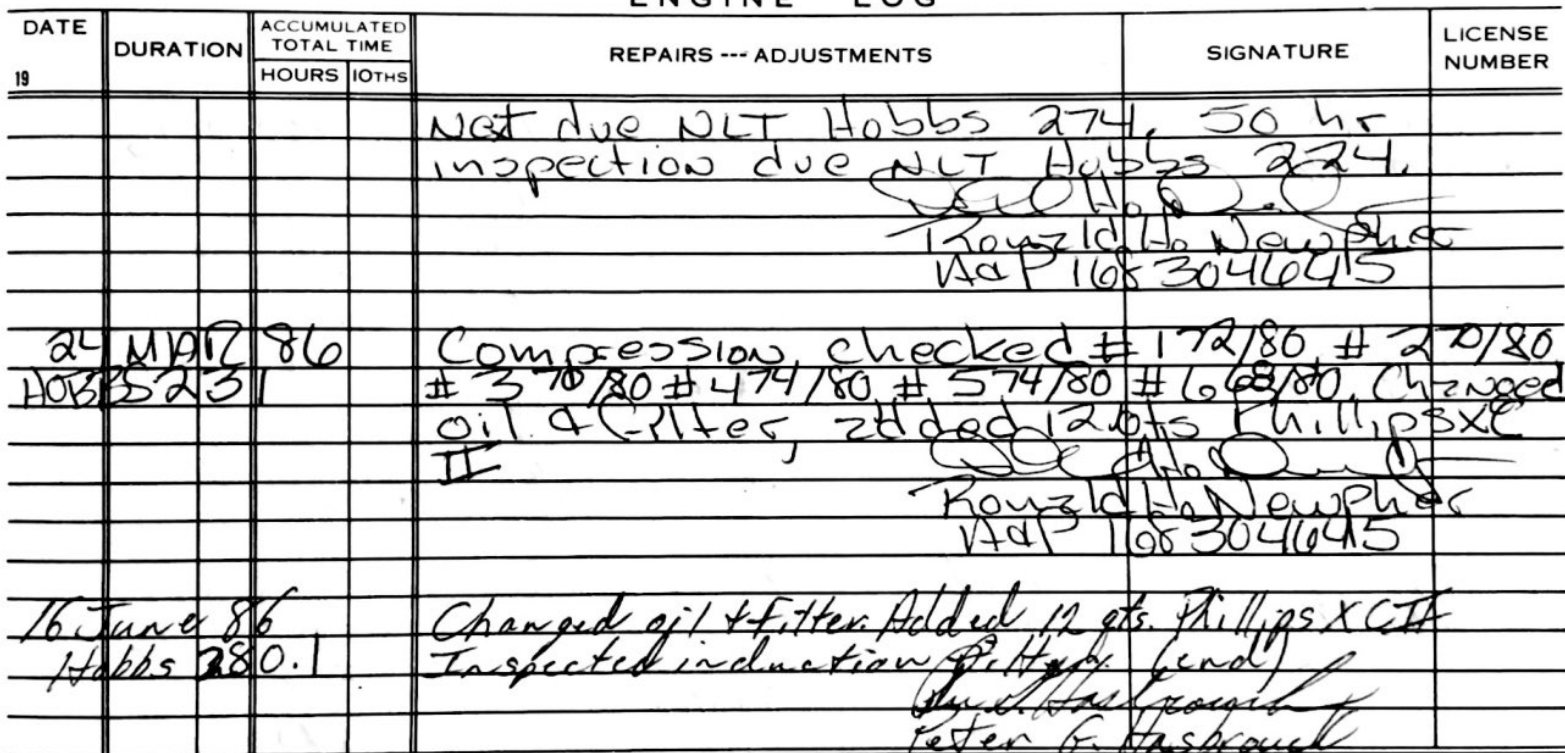 ENGINE LOG
DATE
19
DURATION
ACCUMULATED
TOTAL TIME
HOURS 10THS
REPAIRS --- ADJUSTMENTS
SIGNATURE
LICENSE
NUMBER
Next due NLT Hobbs 274, 50 hr
inspection due NLT Hobbs 224.
Ronald H. Newpher
A&P 168304645
24 MAR 86 Compression checked #1 72/80, #2 70/80
HOBBS 231 #3 70/80 #4 74/80, #5 74/80 #6 68/80. Changed
oil & filter, added 12 qts Phillips XC
II
Ronald H. Newpher
A&P 168304645
16 June 86 Changed oil + Filter. Added 12 qts. Phillips XC II
Hobbs 280.1 Inspected induction (end)
Peter G. Hasbrouck